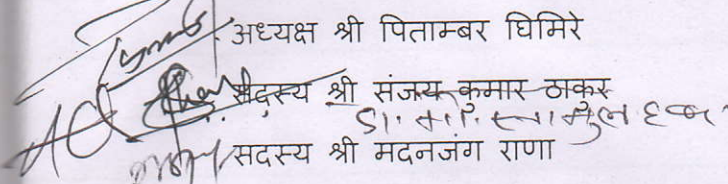 अध्यक्ष श्री पिताम्बर घिमिरे
सदस्य श्री संजय कुमार ठाकुर
सदस्य श्री मदनजंग राणा